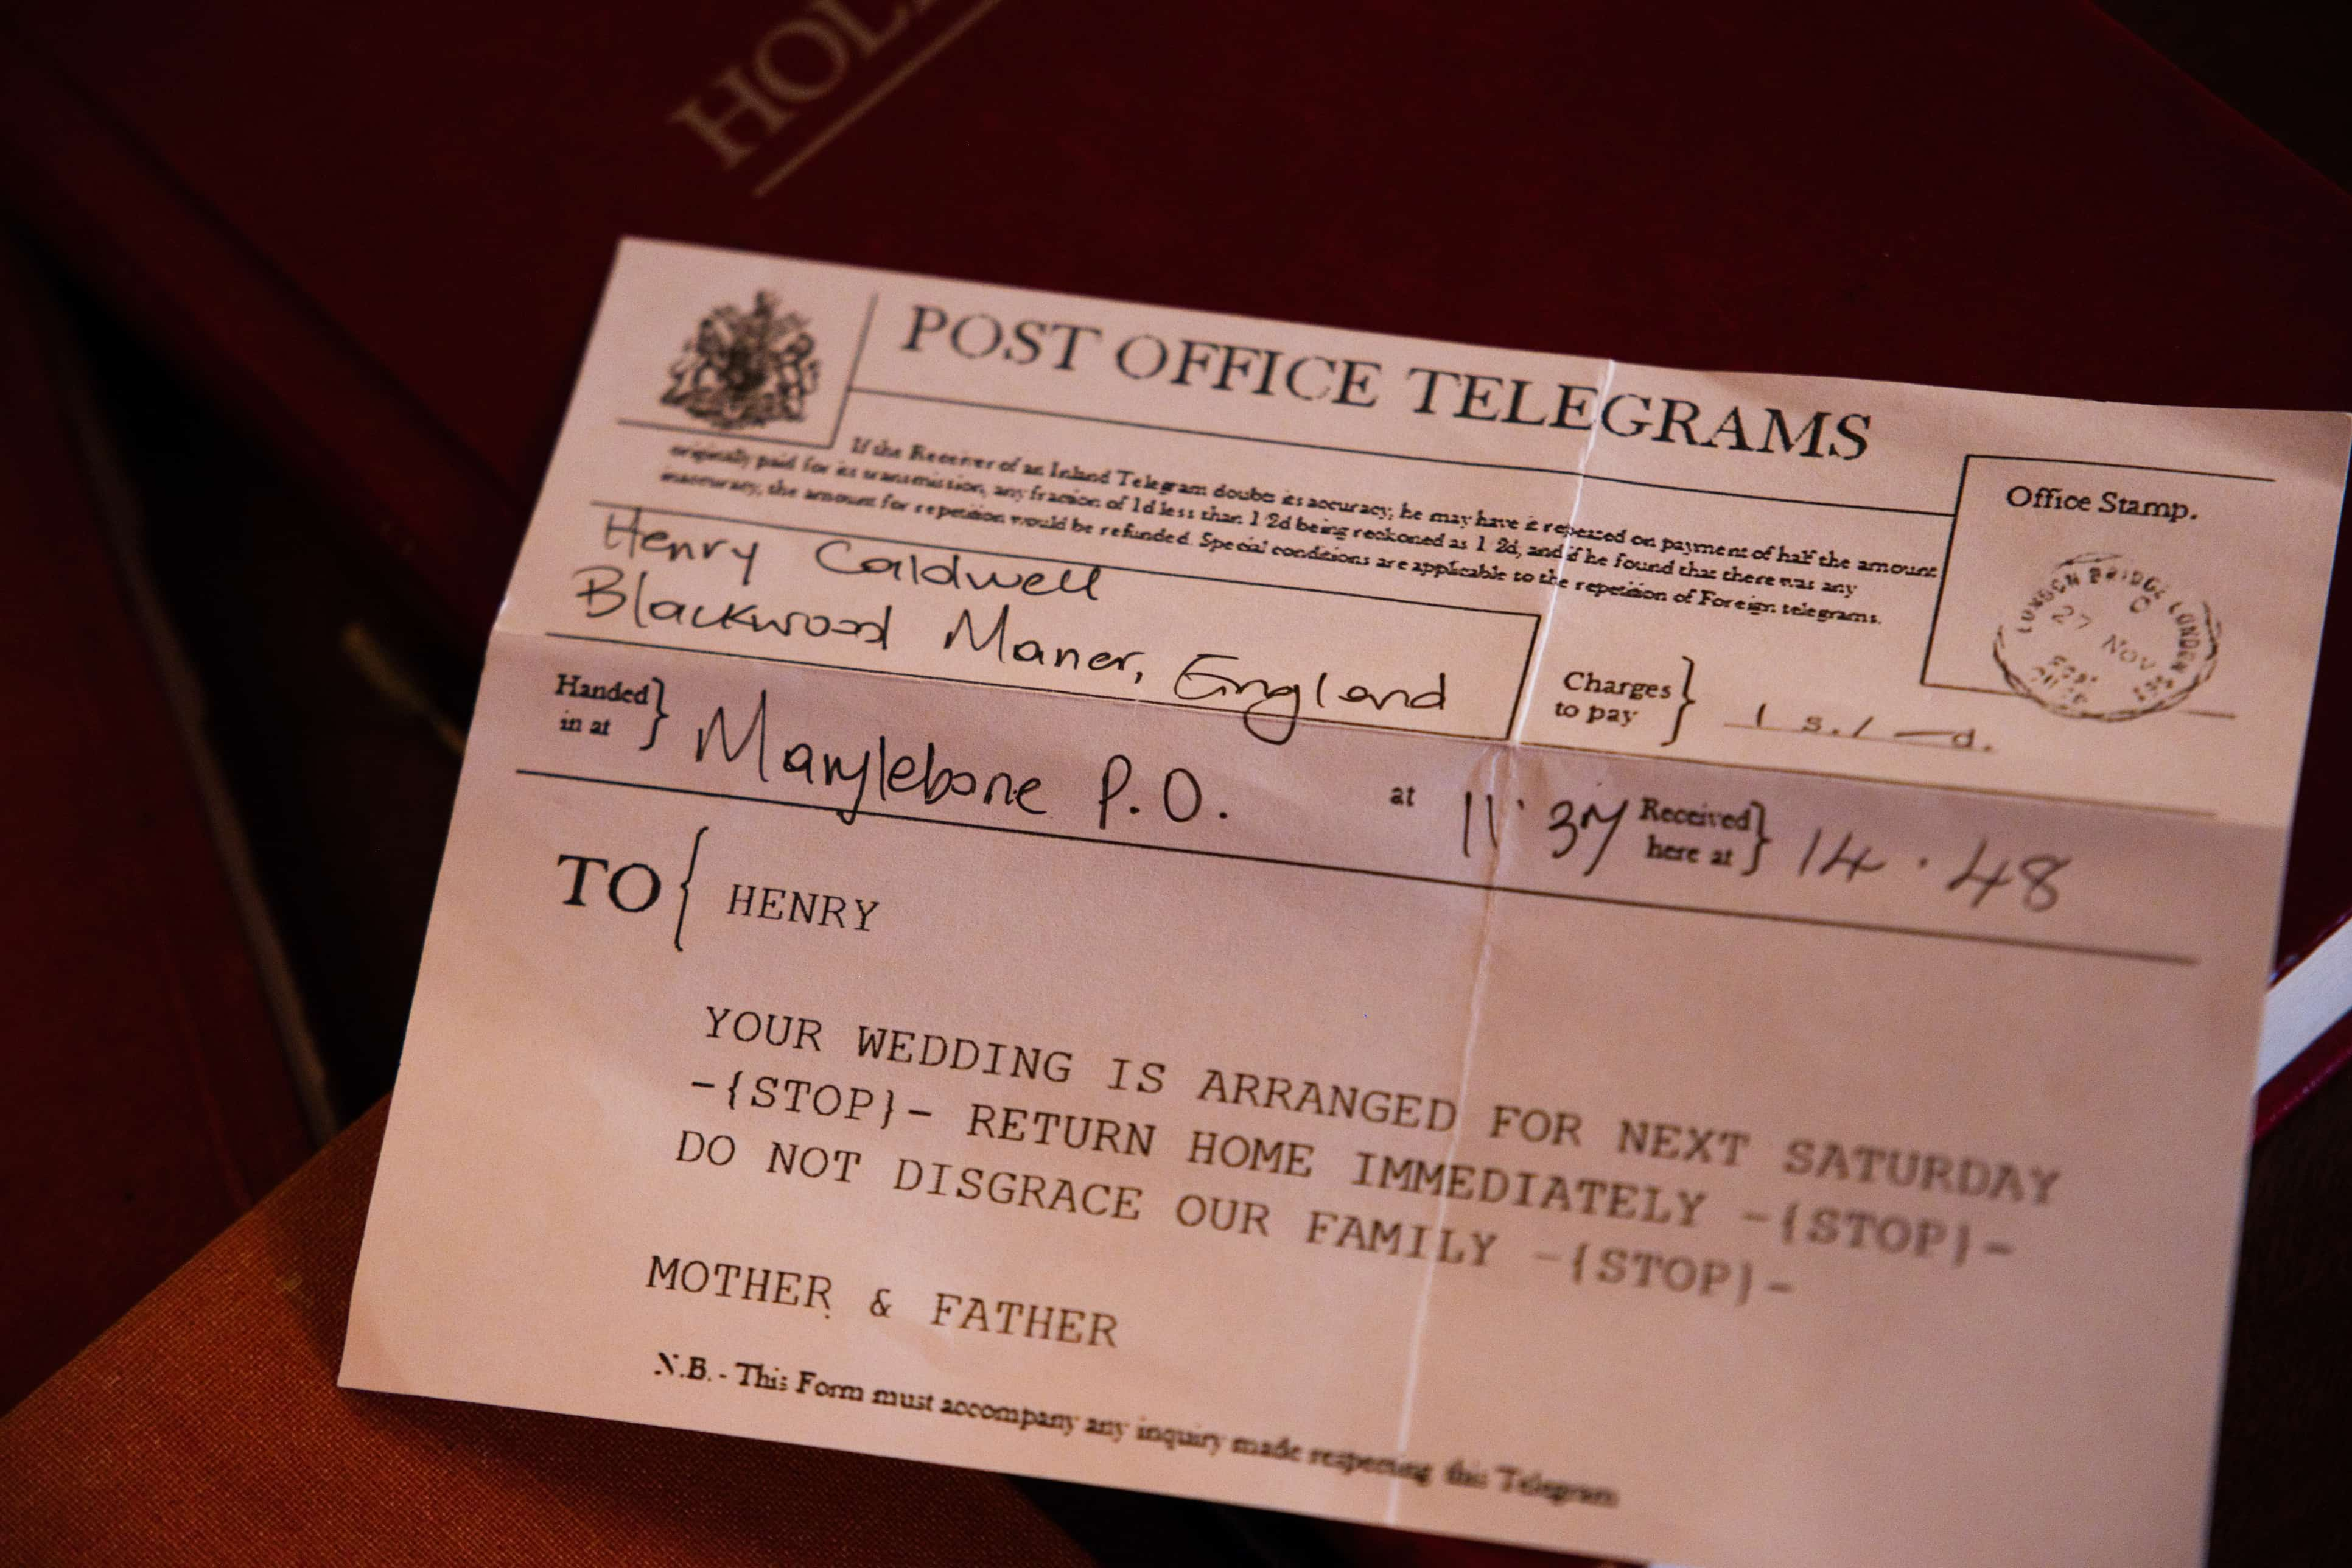 HOL
POST OFFICE TELEGRAMS
If the Receiver of an Inland Telegram doubts its accuracy, he may have it repeated on payment of half the amount
originally paid for its transmission, any fraction of 1d less than 1/2d being reckoned as 1/2d, and if he found that there was any
inaccuracy, the amount for repetition would be refunded. Special conditions are applicable to the repetition of Foreign telegrams.
Office Stamp.
LONDON BRIDGE LONDON
27 Nov
Henry Caldwell
Blackwood Maner, England
Charges
to pay
1 s. / — d.
Handed
in at
Marylebone P.O.
at
11·37
Received
here at
14·48
TO { HENRY
YOUR WEDDING IS ARRANGED FOR NEXT SATURDAY
-{STOP}- RETURN HOME IMMEDIATELY -{STOP}-
DO NOT DISGRACE OUR FAMILY -{STOP}-
MOTHER & FATHER
N.B. - This Form must accompany any inquiry made respecting this Telegram